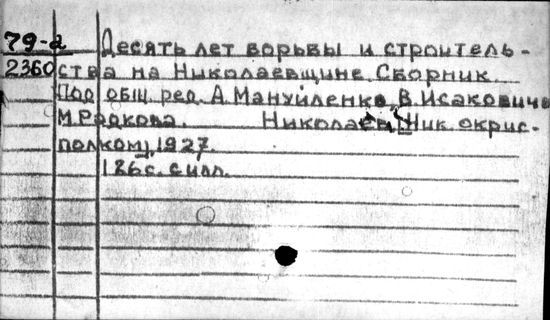 79-2 Десять лет борьбы и строитель-
2360 ства на Николаевщине. Сборник.
Под общ. ред. А. Мануйленко, В. Исаковича
М. Радкова. Николаев, Ник. окрис-
полком, 1927.
186 с. с илл.